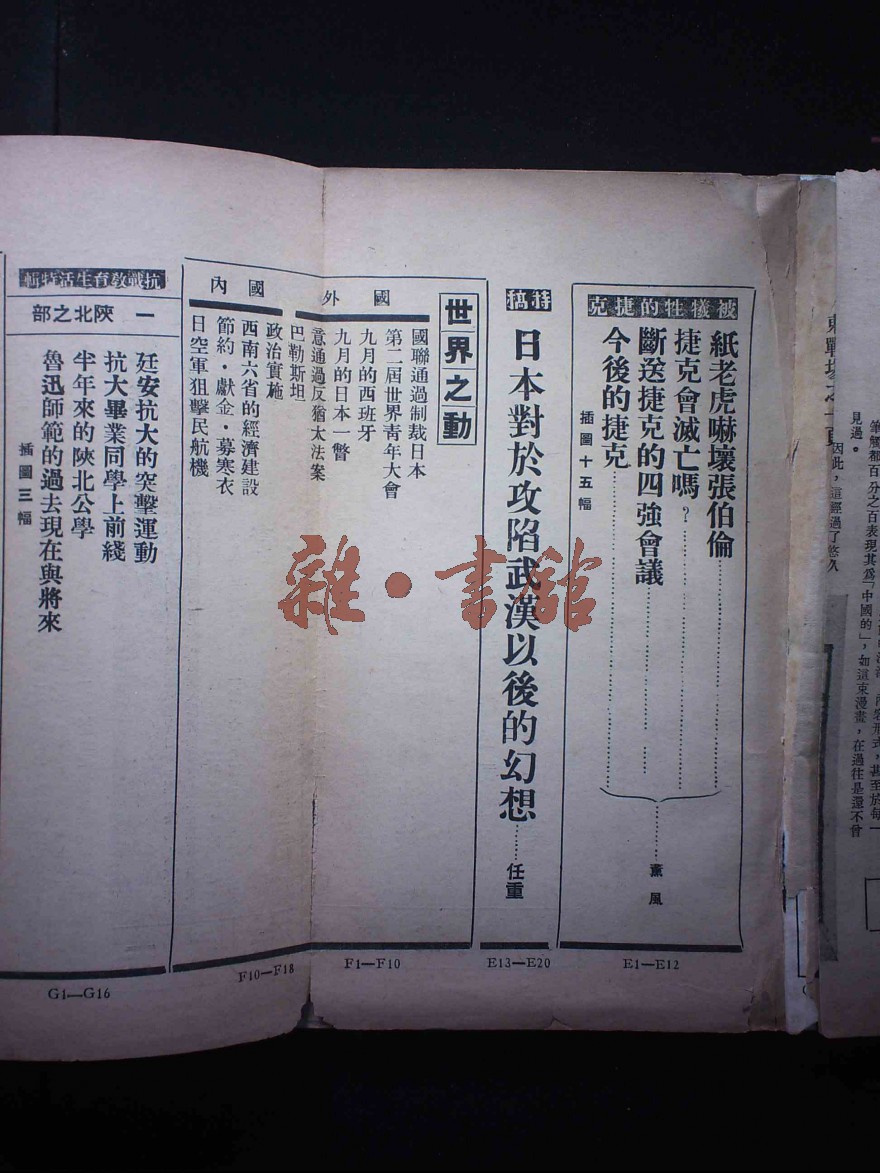 東戰場之一頁
見過。
因此，這經過了悠久
筆觸都百分之百表現其為「中國的」，如這束漫畫，在過往是還不曾
形式，甚至於每一
被犧牲的捷克
紙老虎嚇壞張伯倫
捷克會滅亡嗎？
斷送捷克的四強會議
今後的捷克
插圖十五幅
薰風
E1—E12
特稿
日本對於攻陷武漢以後的幻想
任重
E13—E20
世界之動
國外
國聯通過制裁日本
第二屆世界青年大會
九月的西班牙
九月的日本一瞥
意通過反猶太法案
巴勒斯坦
F1—F10
國內
政治實施
西南六省的經濟建設
節約·獻金·募寒衣
日空軍狙擊民航機
F10—F18
抗戰教育生活特輯
一 陝北之部
廷安抗大的突擊運動
抗大畢業同學上前綫
半年來的陝北公學
魯迅師範的過去現在與將來
插圖三幅
G1—G16
雜·書館